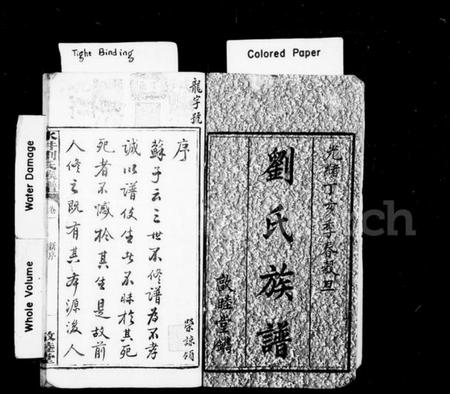 Tight Binding
Colored Paper
Water Damage
Whole Volume
光緒丁亥年春穀旦
劉氏族譜
敦睦堂鐫
龍字號
序
蘇子云三世不修譜為不孝
誠以譜使生者不昧於其死
死者不憾於其生是故前
人修之既有其本源後人
榮諒頌
劉氏
敦睦堂